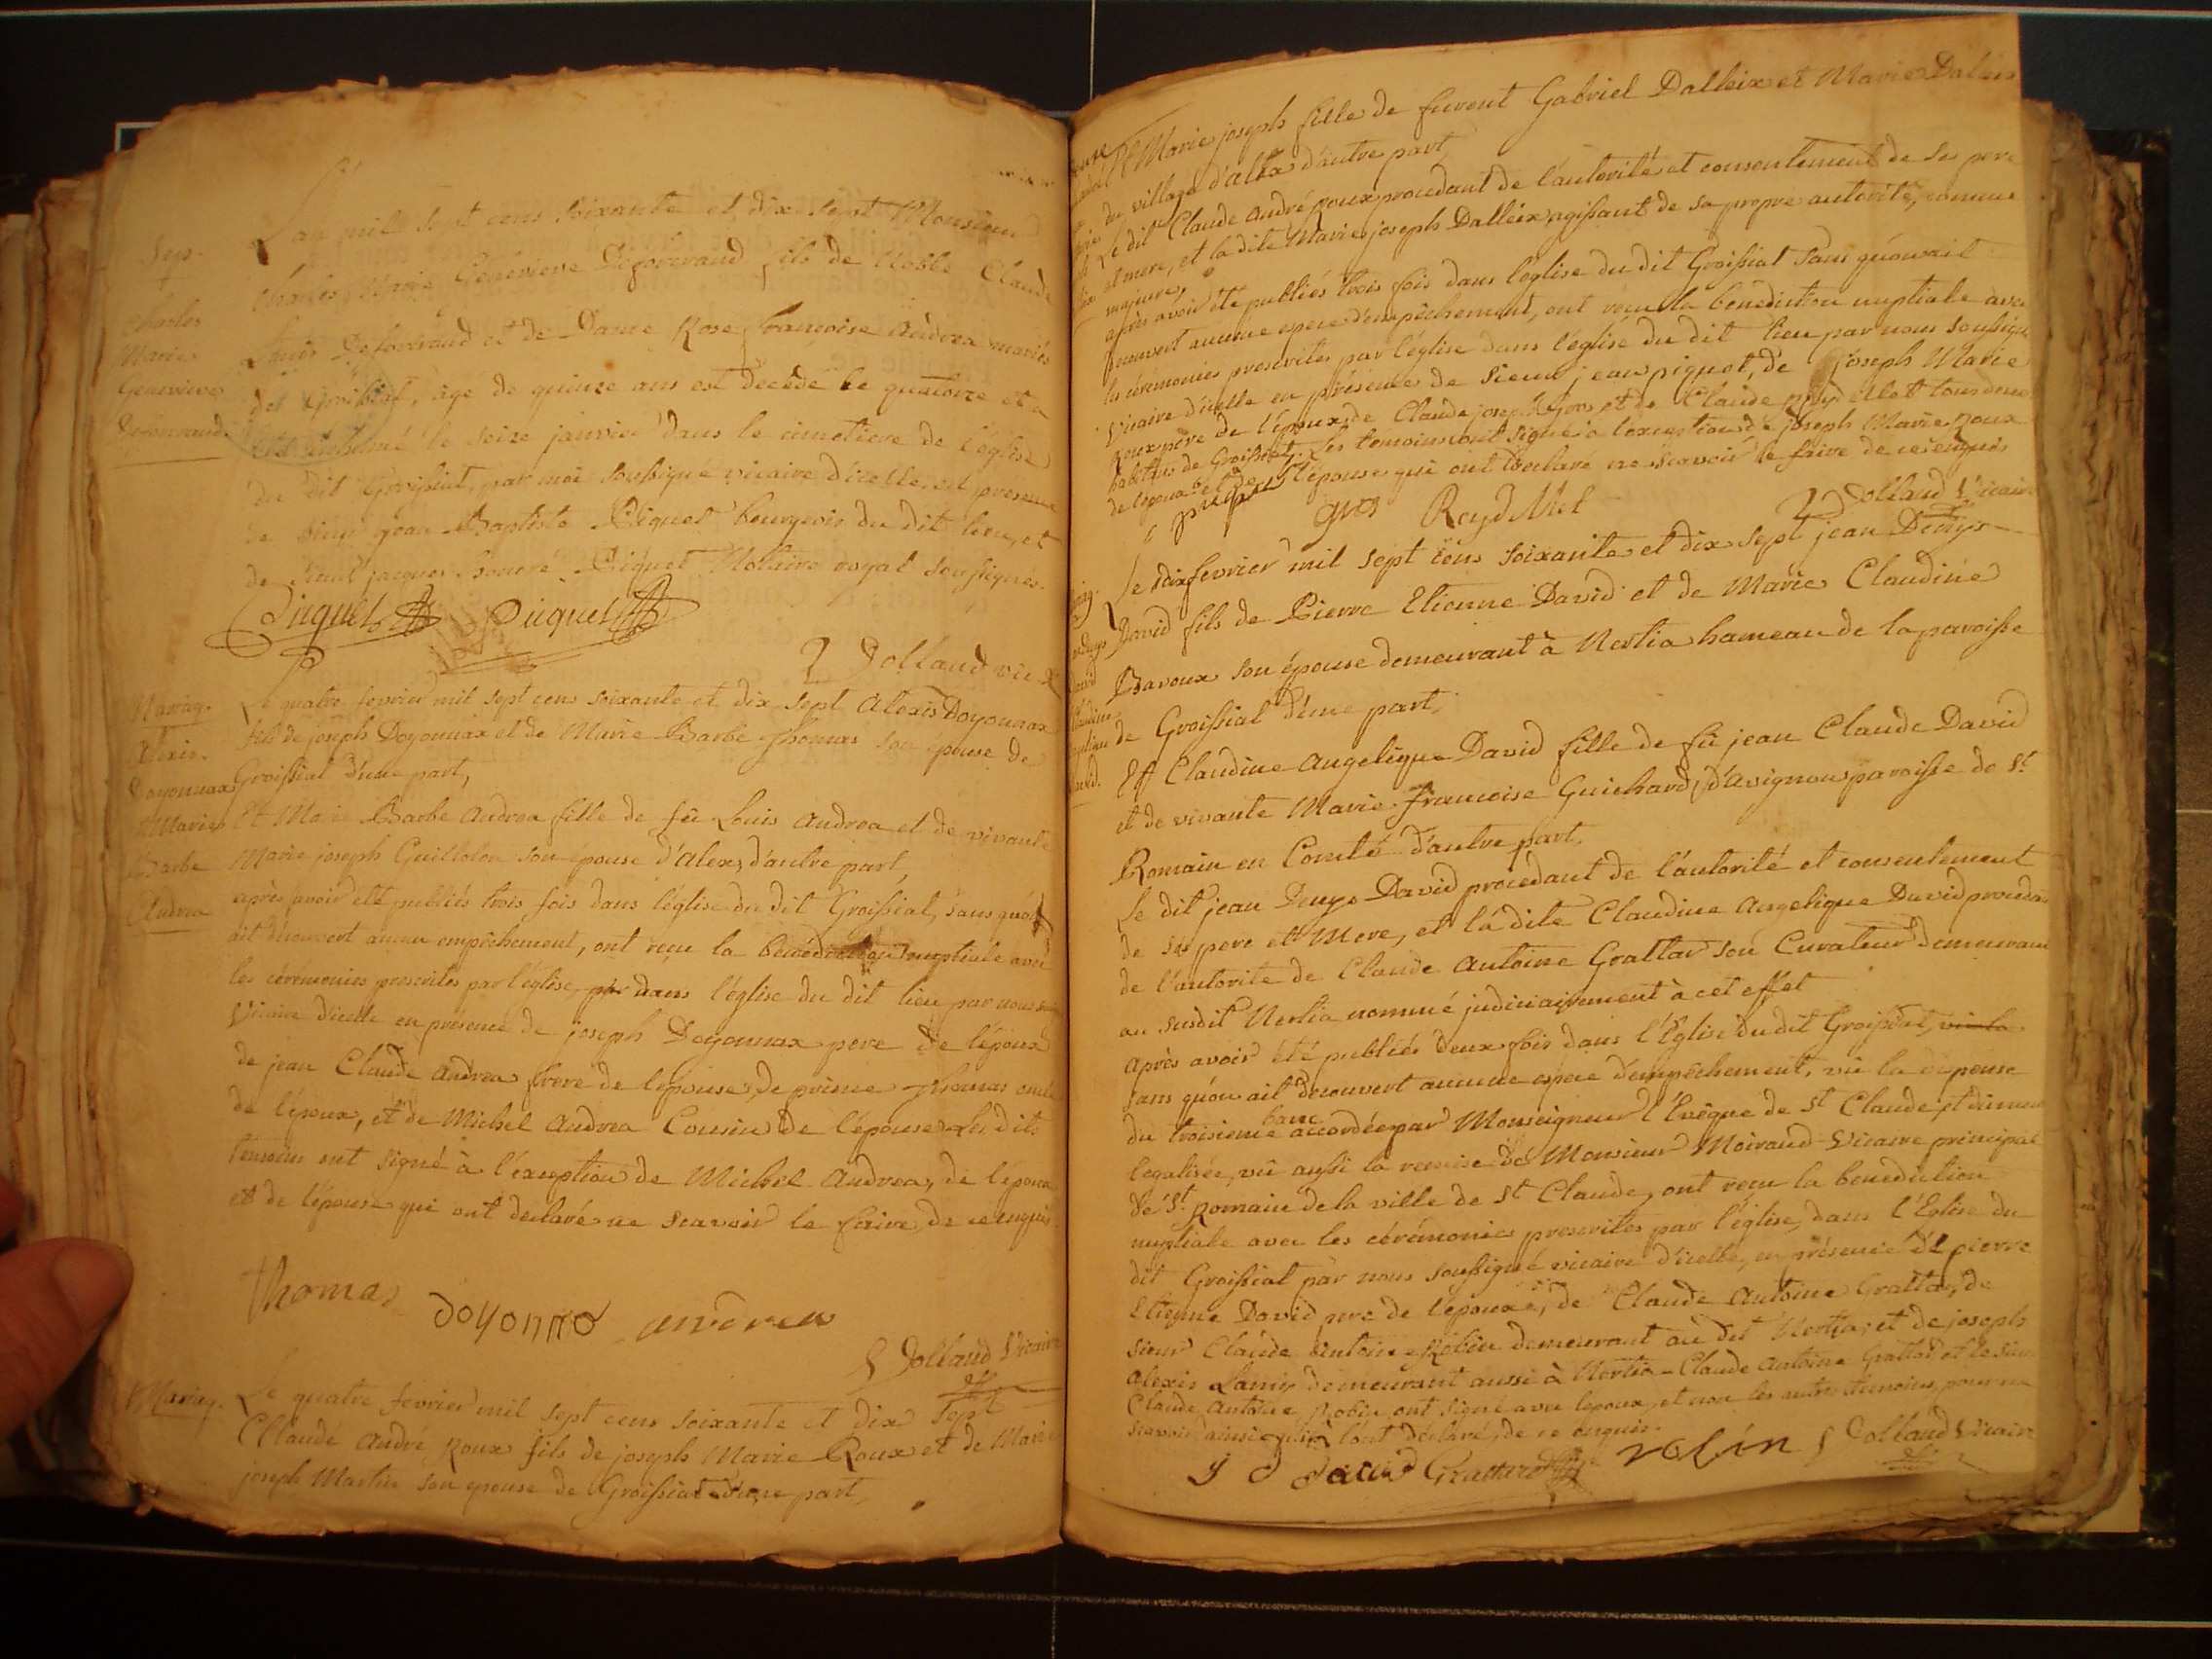 L'an mil sept cens soixante et dix sept Monsieur
Sep.
Charles Marie Genevieve Deforcrand fils de Noble Claude
Charles
Marie
Genevieve
Deforcrand
Louis Deforcrand et de Dame Rose françoise Andrea mariés
de Groissiat, agé de quinze ans est décédé le quatorze et a
été inhumé le seize janvier dans le cimetiere de l'église
du dit Groissiat, par moi soussigné vicaire d'icelle, en presence
de Sieur jean Baptiste Piquet bourgeois du dit lieu, et
de Sieur jacques honoré Piquet Notaire royal soussignés.
Piquet Piquet
Jollaud vic
Mariag.
Alexis
Doyonnax
et Marie
Barbe
Andrea
Le quatre fevrier mil sept cens soixante et dix sept Alexis Doyonnax
fils de joseph Doyonnax et de Marie Barbe Thomas son épouse de
Groissiat d'une part,
Et Marie Barbe Andrea fille de fû Louis Andrea et de vivante
Marie joseph Guillolon son épouse d'Alex, d'autre part,
après avoir été publiés trois fois dans l'église du dit Groissiat, sans qu'on
ait découvert aucun empêchement, ont reçu la bénédiction nuptiale avec
les cérémonies prescrites par l'église, par dans l'église du dit lieu par nous
Vicaire d'icelle en présence de joseph Doyonnax pere de l'époux
de jean Claude Andrea frere de l'epouse, de prime Thomas oncle
de l'époux, et de Michel Andrea Cousin de l'épouse. Les dits
témoins ont signé à l'exception de Michel Andrea, de l'époux
et de l'épouse qui ont declaré ne scavoir le faire, de ce enquis.
Thomas doyonno andrea
Jollaud Vicaire
Mariag.
Le quatre fevrier mil sept cens soixante et dix sept
Claude André Roux fils de joseph Marie Roux et de Marie
joseph Martin son epouse de Groissiat d'une part,
Et Marie joseph fille de furent Gabriel Dalleix et Marie
du village d'alex d'autre part,
Le dit Claude André Roux procedant de l'autorité et consentement de ses pere
et mere, et la dite Marie joseph Dalleix agissant de sa propre autorité, comme
majeure,
après avoir été publiés trois fois dans l'eglise du dit Groissiat sans qu'on ait
decouvert aucune espece d'empêchement, ont reçu la bénédiction nuptiale avec
les cérémonies prescrites par l'église dans l'église du dit lieu par nous soussigné
Vicaire d'icelle en présence de Sieur jean piquet, de joseph Marie
Roux père de l'époux, de Claude joseph Gros et de Claude Reydellet tous deux
habitans de Groissiat. Les temoins ont signé à l'exception de joseph Marie Roux
de l'époux et de l'épouse qui ont declaré ne scavoir le faire de ce enquis
piquet gros Reydellet
Jollaud Vicaire
Le dix fevrier mil sept cens soixante et dix sept jean Denys
David fils de Pierre Etienne David et de Marie Claudine
Bavoux son épouse demeurant à Nertia hameau de la paroisse
de Groissiat d'une part,
Et Claudine Angelique David fille de fû jean Claude David
et de vivante Marie françoise Guichard, d'avignon paroisse de St.
Romain en Comté d'autre part,
Le dit jean Denys David procedant de l'autorité et consentement
de ses pere et Mere, et la dite Claudine Angelique David
de l'autorité de Claude Antoine Grattar son Curateur demeurant
au susdit Nertia nommé judiciairement à cet effet
Après avoir été publiés deux fois dans l'Eglise du dit Groissiat, vu la
sans qu'on ait decouvert aucune espece d'empêchement, vû la dispense
du troisieme banc accordée par Monseigneur l'Evêque de St Claude
legalisée, vû aussi la remise de Monsieur Moiraud Vicaire principal
de St. Romain de la ville de St Claude, ont reçu la benediction
nuptiale avec les cérémonies prescrites par l'église, dans l'Eglise du
dit Groissiat par nous soussigné vicaire d'icelle, en présence de pierre
Etienne David pere de l'époux, de Claude Antoine Grattar, de
Sieur Claude Antoine Robin demeurant au dit Nertia, et de joseph
Alexis Lanix demeurant aussi à Nertia - Claude Antoine Grattar et le Sieur
Claude Antoine Robin ont signé avec l'époux, et non les autres temoins, pour ne
scavoir, ainsi qu'ils l'ont declaré, de ce enquis.
J d david Grattard robin Jollaud Vicaire